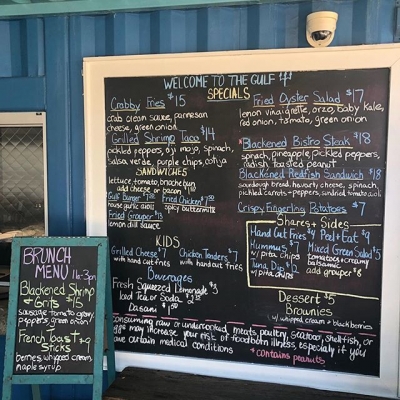 WELCOME TO THE GULF!!!
SPECIALS
Crabby Fries $15
crab cream sauce, parmesan
cheese, green onion
Grilled Shrimp Taco $14
pickled peppers, oji mayo, spinach,
salsa verde, purple chips, cotija
SANDWICHES
lettuce, tomato, brioche bun
add cheese or bacon
Gulf Burger
house garlic aioli
Fried Chicken
spicy buttermilk
Fried Grouper $13
lemon dill sauce
KIDS
Grilled Cheese $7
with hand cut fries
Chicken Tenders $7
with hand cut fries
Beverages
Fresh Squeezed Lemonade $3
Iced Tea or Soda
Dasani
Fried Oyster Salad $17
lemon vinaigrette, orzo, baby kale,
red onion, tomato, green onion
Blackened Bistro Steak $18
spinach, pineapple, pickled peppers,
radish, toasted peanut
Blackened Redfish Sandwich $18
sourdough bread, havarti, cheese, spinach,
pickled carrots + peppers, sundried tomato aioli
Crispy Fingerling Potatoes $7
Shares + Sides
Hand Cut Fries $4
Peel + Eat $9
Hummus $7
w/ pita chips
Mixed Green Salad $5
tomatoes + creamy
balsamic
add grouper $8
Tuna Dip
w/ pita chips
Dessert $5
Brownies
w/ whipped cream + blackberries
Consuming raw or undercooked meats, poultry, seafood, shellfish, or
eggs may increase your risk of foodborn illness, especially if you
have certain medical conditions
+ contains peanuts
BRUNCH
MENU 11a-3pm
Blackened Shrimp
& Grits $15
sausage tomato gravy
peppers, green onion
French Toast $9
Sticks
berries, whipped cream
maple syrup